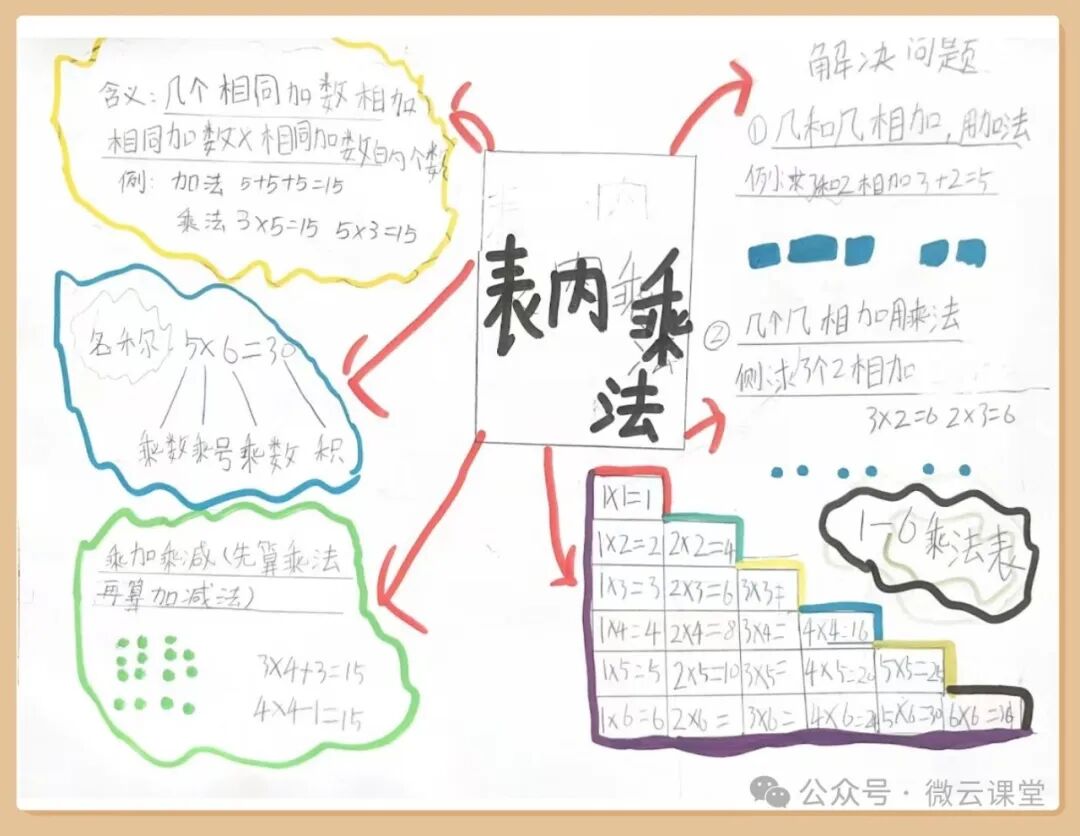 含义：几个相同加数相加
相同加数×相同加数的个数
例：加法 5+5+5=15
乘法 3×5=15 5×3=15
名称 5×6=30
乘数 乘号 乘数 积
乘加乘减（先算乘法
再算加减法）
3×4+3=15
4×4-1=15
表内乘法
解决问题
①几和几相加，用加法
例：求3和2相加3+2=5
②几个几相加用乘法
例求3个2相加
3×2=6 2×3=6
1-6乘法表
1×1=1
1×2=2 2×2=4
1×3=3 2×3=6 3×3=
1×4=4 2×4=8 3×4= 4×4=16
1×5=5 2×5=10 3×5= 4×5=20 5×5=25
1×6=6 2×6= 3×6= 4×6=24 5×6=30 6×6=36
公众号·微云课堂